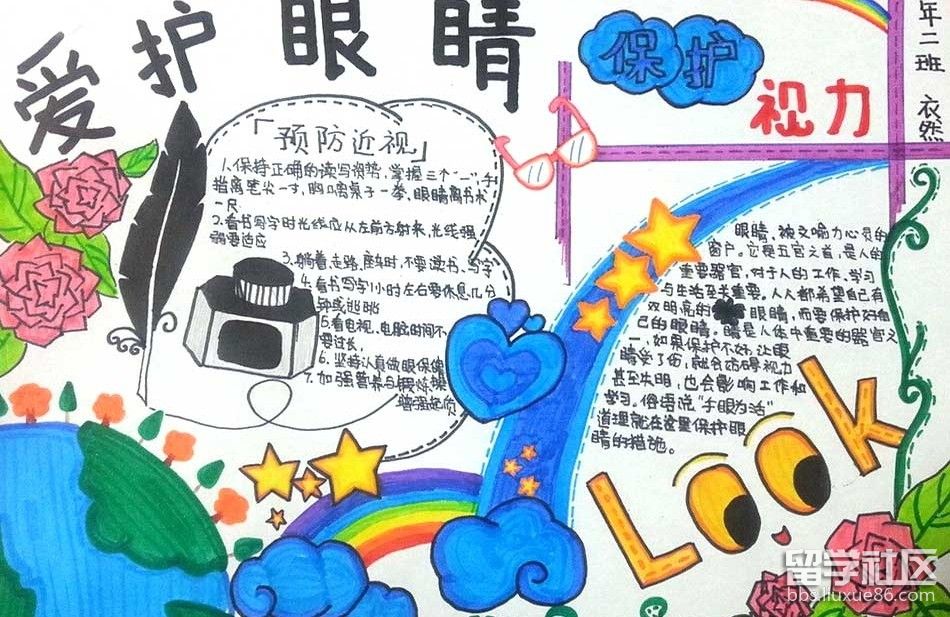 爱护眼睛
保护
视力
年二班 衣然
「预防近视」
1.保持正确的读写资势,掌握三个"一",手
指离笔尖一寸,胸离桌子一拳,眼睛离书术
一尺
2.看书写字时光线应从左前方射来,光线强
弱要适应
3.躺着、走路、座车时,不要读书、写字
4.看书写字1小时左右要休息几分
钟或逃眺
5.看电视、电脑时间不
要过长,
6.坚持认真做眼保健
7.加强营养与锻炼
增强
眼睛,被又喻为心灵的
窗户。它是五官之首,是人的
重要器官,对于人的工作、学习
与生活至关重要。人人都希望自己有
双明亮的眼睛,而要保护好自
己的眼睛。睛是人体中重要的器官之
一,如果保护不好,让眼
睛受了伤,就会妨碍视力
甚至失明,也会影响工作和
学习。俗语说"手眼为活"
道理就在这里保护眼
睛的措施。
Look
留学社区
bbs.liuxue86.com